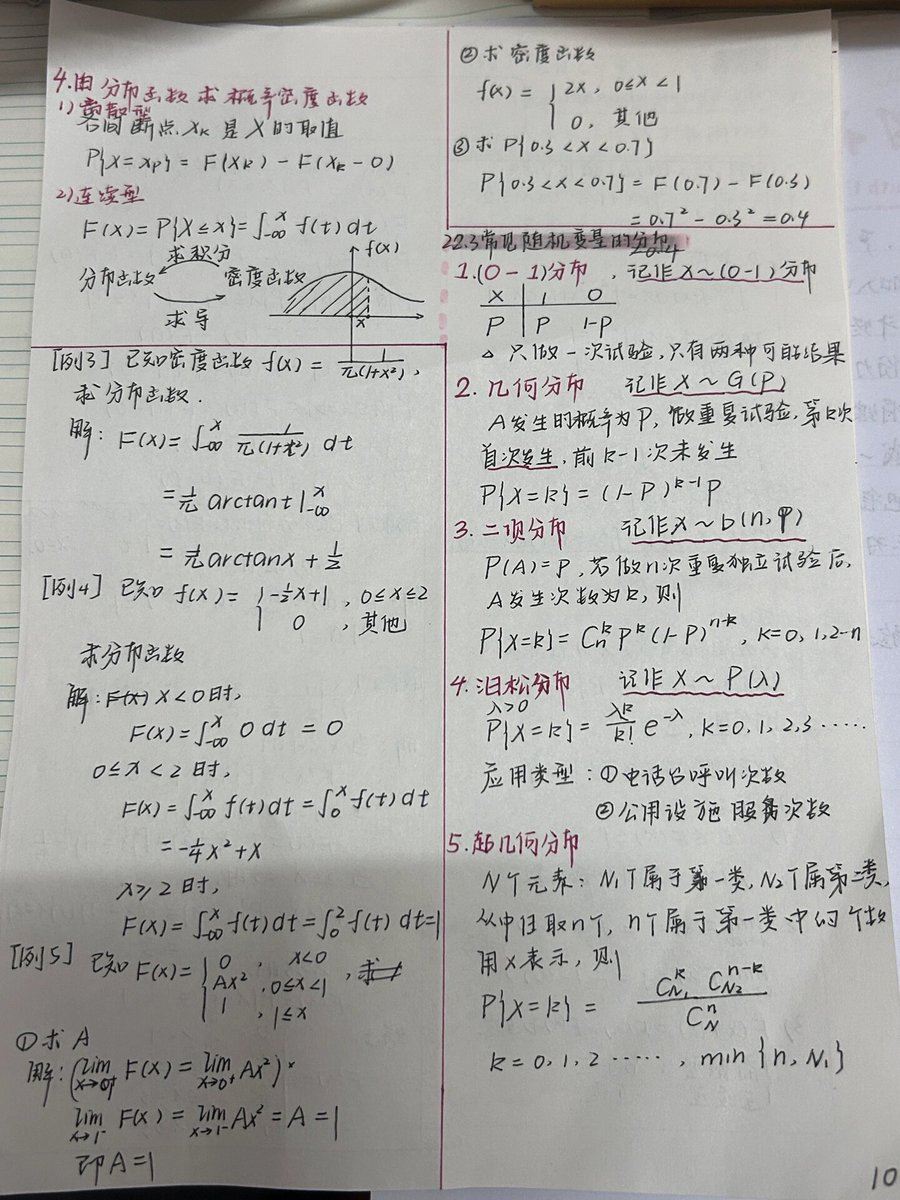 4.由分布函数求概率密度函数
1)离散型
若间断点 xk 是X的取值
P{X=xP} = F(xk) - F(xk-0)
2)连续型
F(x)=P{X≤x}=∫_{-∞}^{x} f(t)dt
求积分
分布函数 密度函数
求导
f(x)
x
[例3] 已知密度函数 f(x) = 1/(π(1+x²)),
求分布函数.
解: F(x)=∫_{-∞}^{x} 1/(π(1+t²)) dt
= 1/π arctan t |_{-∞}^{x}
= 1/π arctanx + 1/2
[例4] 已知 f(x) = { -½x+1 , 0≤x≤2
0 , 其他
求分布函数
解: F(x) x<0时,
F(x)=∫_{-∞}^{x} 0 dt = 0
0≤x<2时,
F(x)=∫_{-∞}^{x} f(t)dt=∫_{0}^{x} f(t)dt
= -¼x²+x
x≥2时,
F(x)=∫_{-∞}^{x} f(t)dt=∫_{0}^{2} f(t)dt=1
[例5] 已知 F(x)= { 0 , x<0
Ax² , 0≤x<1 , 求
1 , 1≤x
①求A
解: (lim_{x→0+} F(x) = lim_{x→0+} Ax²)×
lim_{x→1-} F(x) = lim_{x→1-} Ax² = A = 1
即A=1
②求密度函数
f(x) = { 2x, 0≤x<1
0, 其他
③求P{0.3<x<0.7}
P{0.3<x<0.7}= F(0.7) - F(0.3)
=0.7²-0.3²=0.4
22.3常见随机变量的分布
1.(0-1)分布 , 记作X~(0-1)分布
X 1 0
P P 1-P
△ 只做一次试验,只有两种可能结果
2.几何分布 记作X~G(P)
A发生的概率为P, 做重复试验, 第k次
首次发生, 前k-1次未发生
P{X=k} = (1-P)^{k-1}P
3.二项分布 记作X~b(n,P)
P(A)=P, 若做n次重复独立试验后,
A发生次数为k, 则
P{X=k}=C_n^k P^k (1-P)^{n-k}, k=0,1,2-n
4.泊松分布 记作X~P(λ)
λ>0
P{X=k}= λ^k/k! e^{-λ}, k=0,1,2,3······
应用类型: ①电话台呼叫次数
②公用设施 服务次数
5.超几何分布
N个元素: N₁个属于第一类, N₂个属第二类,
从中任取n个, n个属于第一类中的个数
用x表示, 则
P{X=k} = C_{N₁}^{k} C_{N₂}^{n-k} / C_N^n
k=0,1,2 ······, min{n,N₁}
10